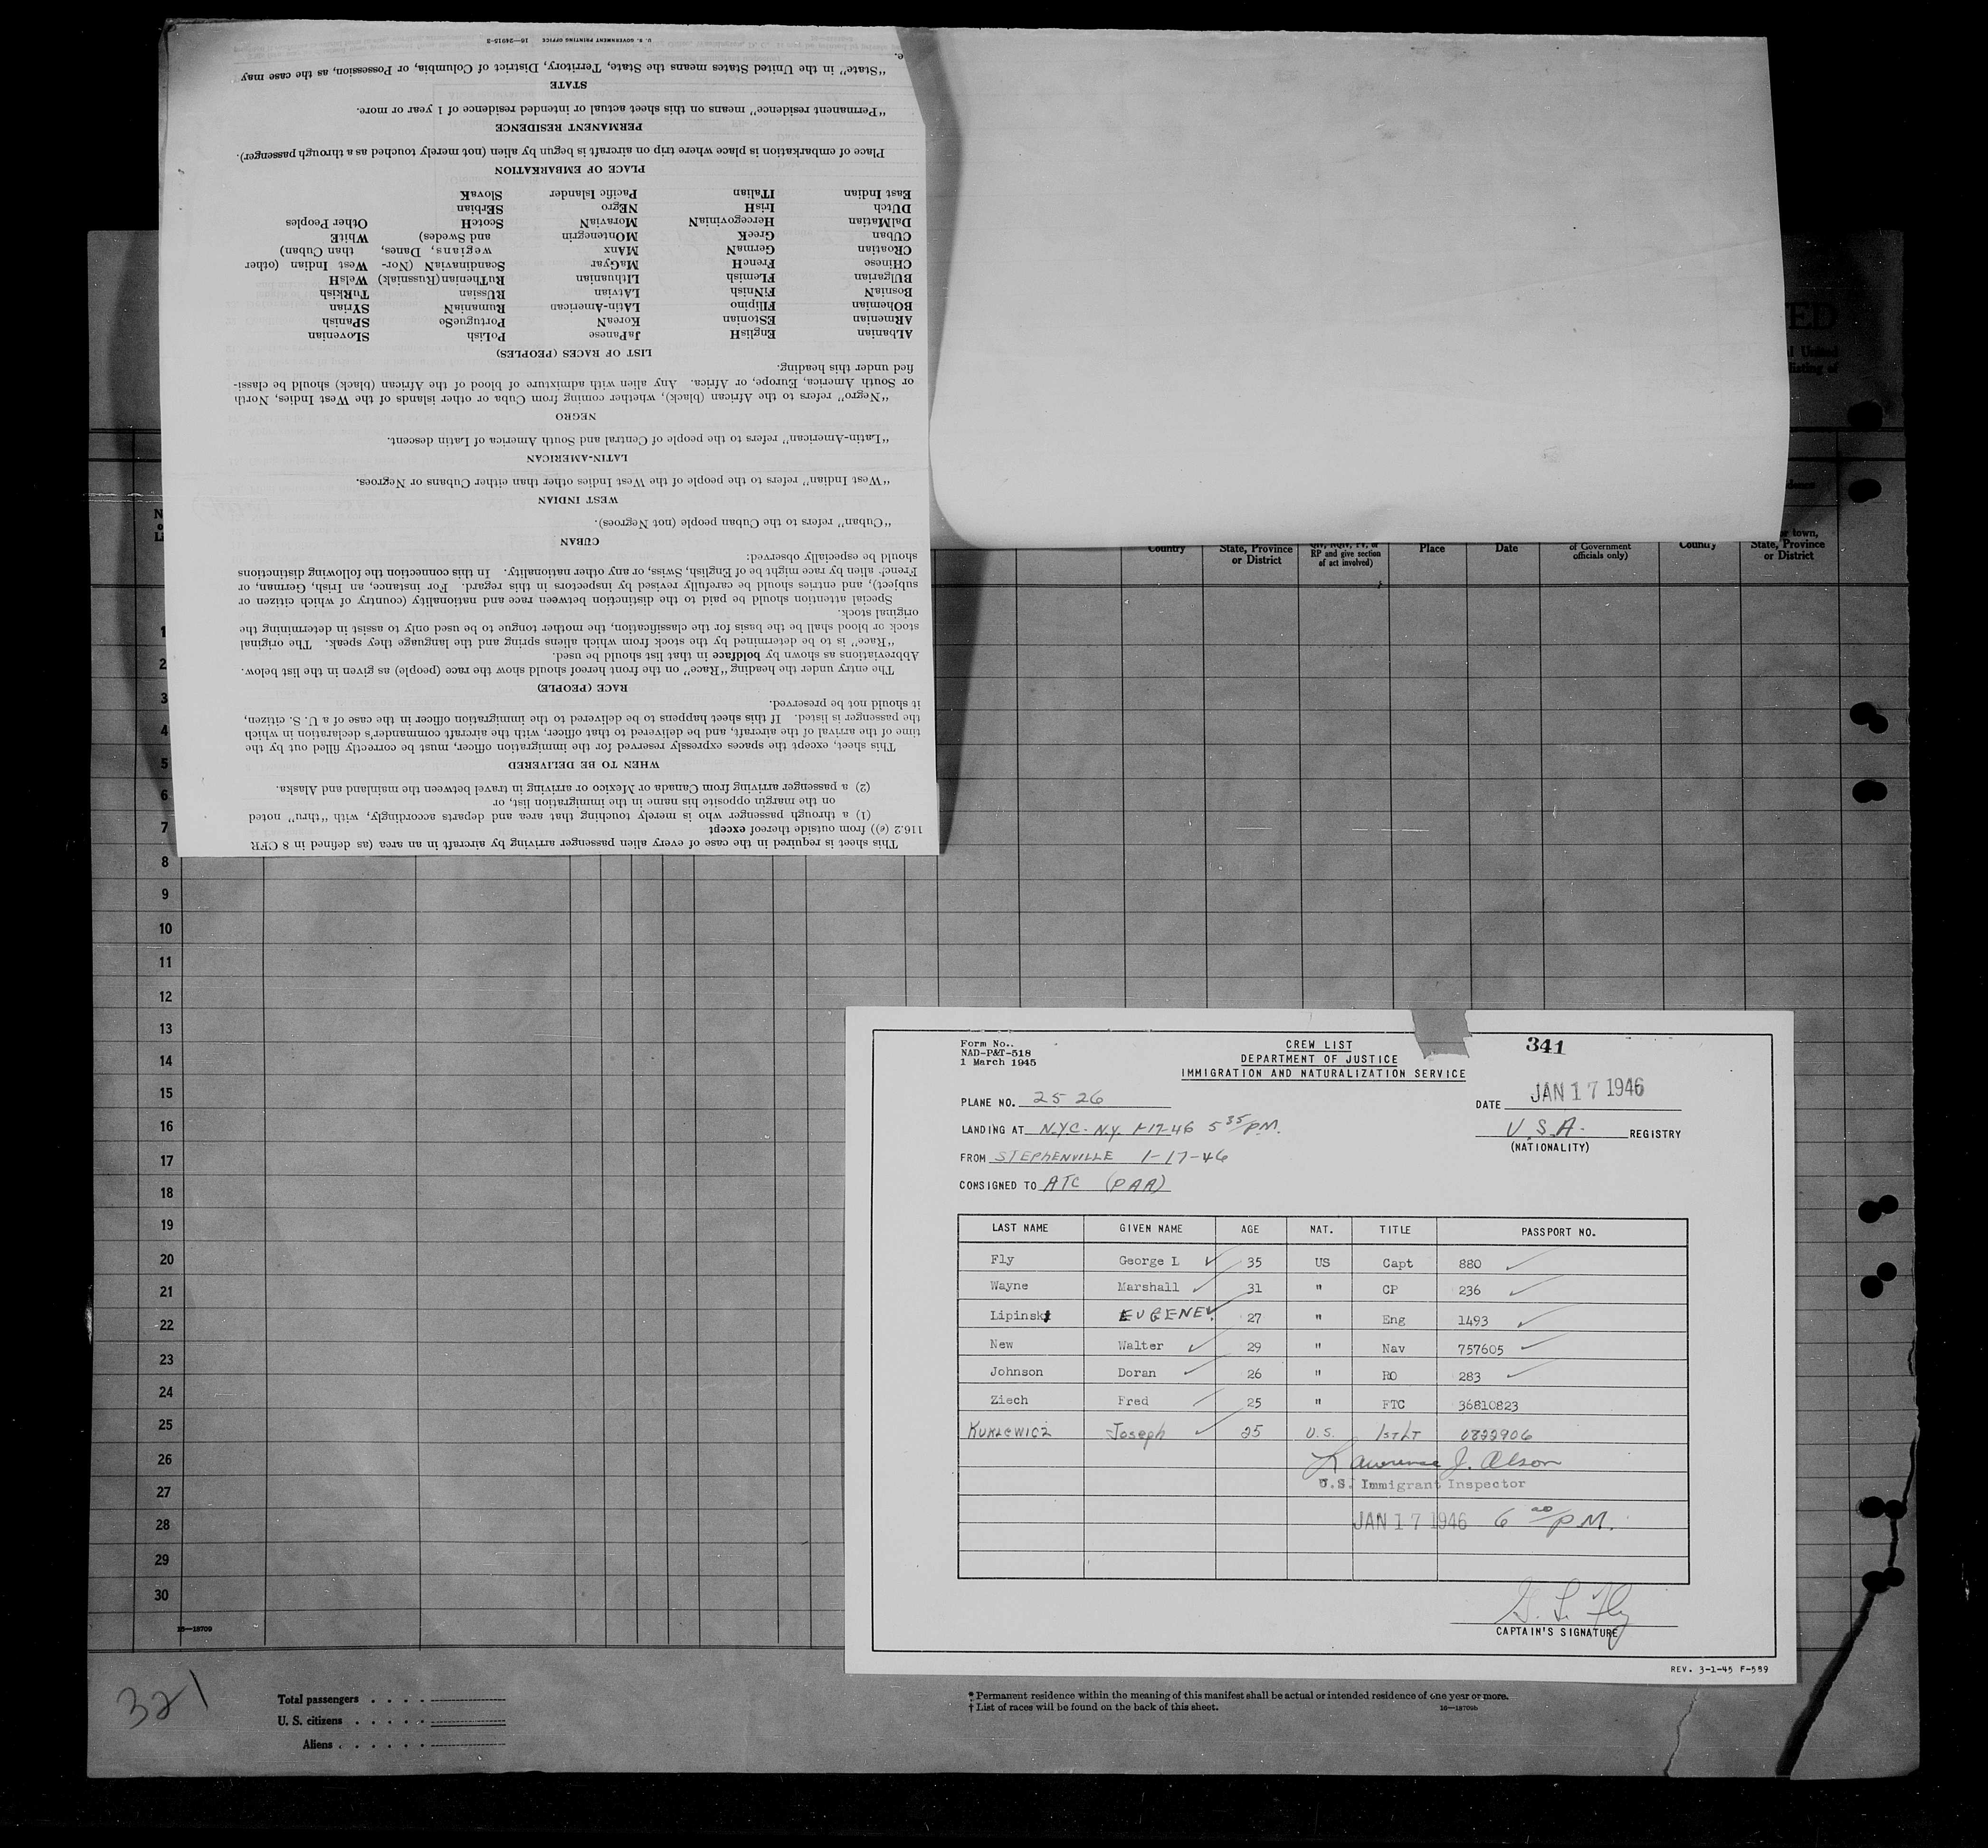 This sheet is required in the case of every alien passenger arriving by aircraft in an area (as defined in 8 CFR
116.2 (e)) from outside thereof except
(1) a through passenger who is merely touching that area and departs accordingly, with "thru" noted
on the margin opposite his name in the immigration list, or
(2) a passenger arriving from Canada or Mexico or arriving in travel between the mainland and Alaska.
WHEN TO BE DELIVERED
This sheet, except the spaces expressly reserved for the immigration officer, must be correctly filled out by the
time of the arrival of the aircraft, and be delivered to that officer, with the aircraft commander's declaration in which
the passenger is listed. If this sheet happens to be delivered to the immigration officer in the case of a U. S. citizen,
it should not be preserved.
RACE (PEOPLE)
The entry under the heading "Race" on the front hereof should show the race (people) as given in the list below.
Abbreviations as shown by boldface in that list should be used.
"Race" is to be determined by the stock from which aliens spring and the language they speak. The original
stock or blood shall be the basis for the classification, the mother tongue to be used only to assist in determining the
original stock.
Special attention should be paid to the distinction between race and nationality (country of which citizen or
subject), and entries should be carefully revised by inspectors in this regard. For instance, an Irish, German, or
French alien by race might be of English, Swiss, or any other nationality. In this connection the following distinctions
should be especially observed:
CUBAN
"Cuban" refers to the Cuban people (not Negroes).
WEST INDIAN
"West Indian" refers to the people of the West Indies other than either Cubans or Negroes.
LATIN-AMERICAN
"Latin-American" refers to the people of Central and South America of Latin descent.
NEGRO
"Negro" refers to the African (black), whether coming from Cuba or other islands of the West Indies, North
or South America, Europe, or Africa. Any alien with admixture of blood of the African (black) should be classi-
fied under this heading.
LIST OF RACES (PEOPLES)
ALbanian EngliSH JaPanese PoLish SLOvenian
ARmenian EStonian KoreaN PortugueSe SPanish
BOhemian FIlipino LAtin-American RumaniaN SYrian
BosniaN FiNnish LATvian RUssian TuRKish
BUlgarian FLemish LIthuanian RuThenian (Russniak) WelsH
CHinese FrencH MaGyar ScandinaviaN (Nor- West Indian (other
CRoatian GermaN MAnx wegians, Danes, than Cuban)
CUban GreeK MOntenegrin and Swedes) WhitE
DalMatian HercegoviniaN MoraviaN ScotcH Other Peoples
DUtch IrisH NEgro SErbian
East Indian ITalian Pacific Islander SlovaK
PLACE OF EMBARKATION
Place of embarkation is place where trip on aircraft is begun by alien (not merely touched as a through passenger).
PERMANENT RESIDENCE
"Permanent residence" means on this sheet actual or intended residence of 1 year or more.
STATE
"State" in the United States means the State, Territory, District of Columbia, or Possession, as the case may
e.
U. S. GOVERNMENT PRINTING OFFICE 16—24915-2
ED
United
listing of
Country
State, Province
or District
RP and give section
of act involved)
Place
Date
of Government
officials only)
Country
town,
State, Province
or District
1
2
3
4
5
6
7
8
9
10
11
12
13
14
15
16
17
18
19
20
21
22
23
24
25
26
27
28
29
30
16—18709
Form No..
NAD-P&T-518
1 March 1945
CREW LIST
DEPARTMENT OF JUSTICE
IMMIGRATION AND NATURALIZATION SERVICE
341
PLANE NO. 25 26
DATE JAN 17 1946
LANDING AT N.Y.C. N.Y. 1-17-46 5 35/PM.
U.S.A. REGISTRY
(NATIONALITY)
FROM STEPHENVILLE 1-17-46
CONSIGNED TO ATC (PAA)
LAST NAME GIVEN NAME AGE NAT. TITLE PASSPORT NO.
Fly George L 35 US Capt 880
Wayne Marshall 31 " CP 236
Lipinski EUGENE 27 " Eng 1493
New Walter 29 " Nav 757605
Johnson Doran 26 " RO 283
Ziech Fred 25 " FTC 36810823
KUKLEWICZ Joseph 25 U.S. 1ST LT 0822906
Lawrence J. Olson
U.S. Immigrant Inspector
JAN 17 1946 6 00/P.M.
G. L. Fly
CAPTAIN'S SIGNATURE
REV. 3-1-45 F-599
321
Total passengers . . . .
U. S. citizens . . . . .
Aliens . . . . . .
* Permanent residence within the meaning of this manifest shall be actual or intended residence of one year or more.
† List of races will be found on the back of this sheet.
16—18709b